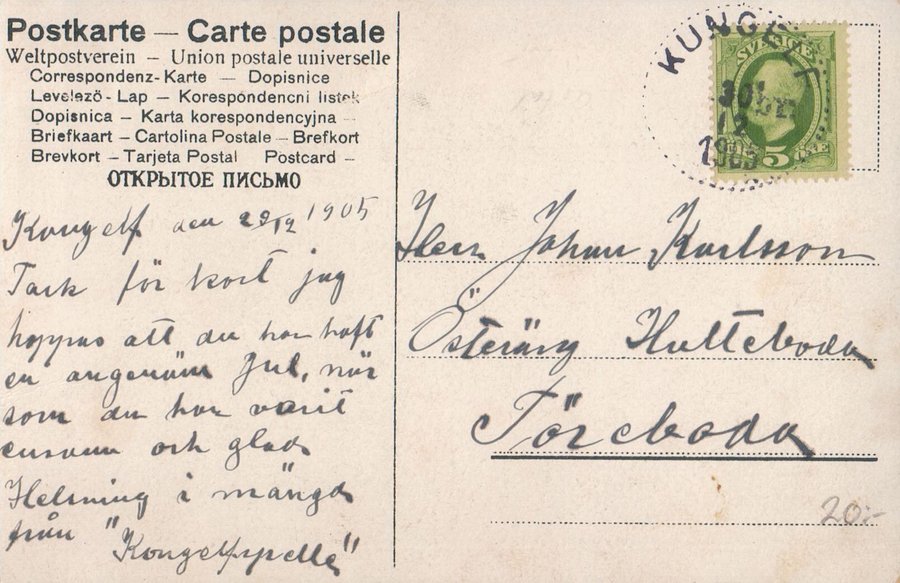 Postkarte — Carte postale
Weltpostverein — Union postale universelle
Correspondenz-Karte — Dopisnice
Levelező-Lap — Korespondencni listek
Dopisnica — Karta korespondencyjna —
Briefkaart — Cartolina Postale — Brefkort
Brevkort — Tarjeta Postal Postcard —
ОТКРЫТОЕ ПИСЬМО
Kongelf den 29/12 1905
Tack för kort jag
hoppas att du har haft
en angenäm Jul, när
som du har varit
ensam och glad
Helsning i mängd
från "Kongelfspelle"
KUNGELF
30 12
1905
SVERIGE
5 ÖRE
Herr Johan Karlsson
Österäng Hulteboda
Töreboda
20:-